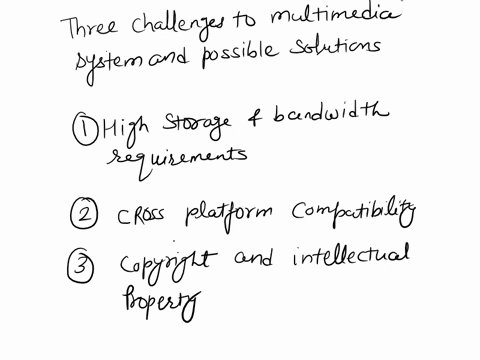 Three challenges to multimedia
system and possible solutions
① High Storage & bandwidth
requirements
② CROSS platform Compatibility
③ Copyright and intellectual
Property